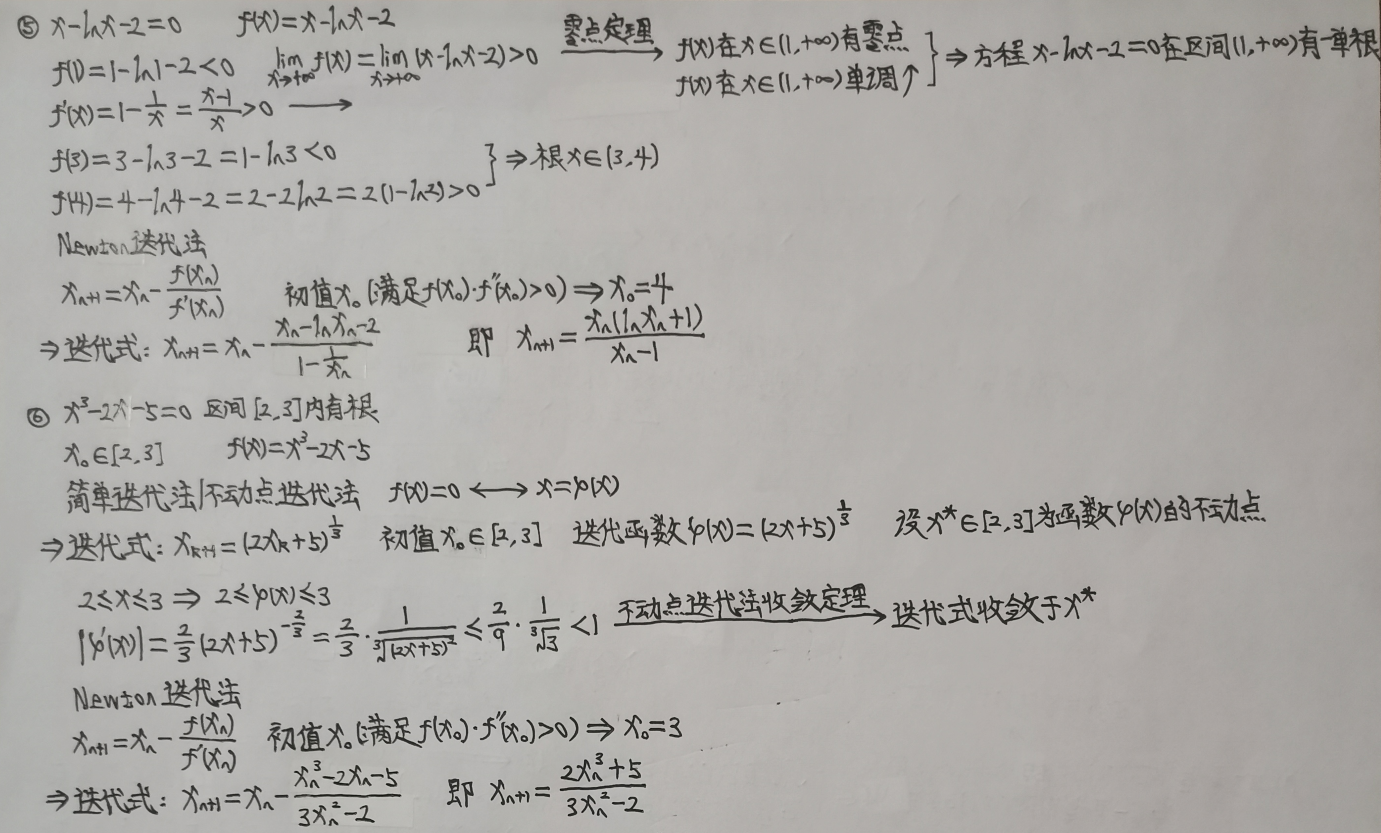 ⑤ x-lnx-2=0 f(x)=x-lnx-2
f(1)=1-ln1-2<0 lim_{x→+∞} f(x)=lim_{x→+∞}(x-lnx-2)>0 零点定理→ f(x)在x∈(1,+∞)有零点
f'(x)=1-1/x=(x-1)/x>0 ⟶ f(x)在x∈(1,+∞)单调↑ } ⇒方程x-lnx-2=0在区间(1,+∞)有一单根
f(3)=3-ln3-2=1-ln3<0
f(4)=4-ln4-2=2-2ln2=2(1-ln2)>0 } ⇒根x∈(3,4)
Newton迭代法
x_{n+1}=x_n-f(x_n)/f'(x_n) 初值x₀(满足f(x₀)·f''(x₀)>0)⇒x₀=4
⇒迭代式: x_{n+1}=x_n-(x_n-lnx_n-2)/(1-1/x_n) 即 x_{n+1}=x_n(lnx_n+1)/(x_n-1)
⑥ x³-2x-5=0 区间[2,3]内有根
x₀∈[2,3] f(x)=x³-2x-5
简单迭代法/不动点迭代法 f(x)=0 ⟷ x=φ(x)
⇒迭代式: x_{k+1}=(2x_k+5)^{1/3} 初值x₀∈[2,3] 迭代函数φ(x)=(2x+5)^{1/3} 设x*∈[2,3]为函数φ(x)的不动点
2≤x≤3 ⇒ 2≤φ(x)≤3
|φ'(x)|=2/3(2x+5)^{-2/3}=2/3·1/∛(2x+5)²≤2/9·1/∛3<1 不动点迭代法收敛定理→ 迭代式收敛于x*
Newton迭代法
x_{n+1}=x_n-f(x_n)/f'(x_n) 初值x₀(满足f(x₀)·f''(x₀)>0)⇒x₀=3
⇒迭代式: x_{n+1}=x_n-(x_n³-2x_n-5)/(3x_n²-2) 即 x_{n+1}=(2x_n³+5)/(3x_n²-2)